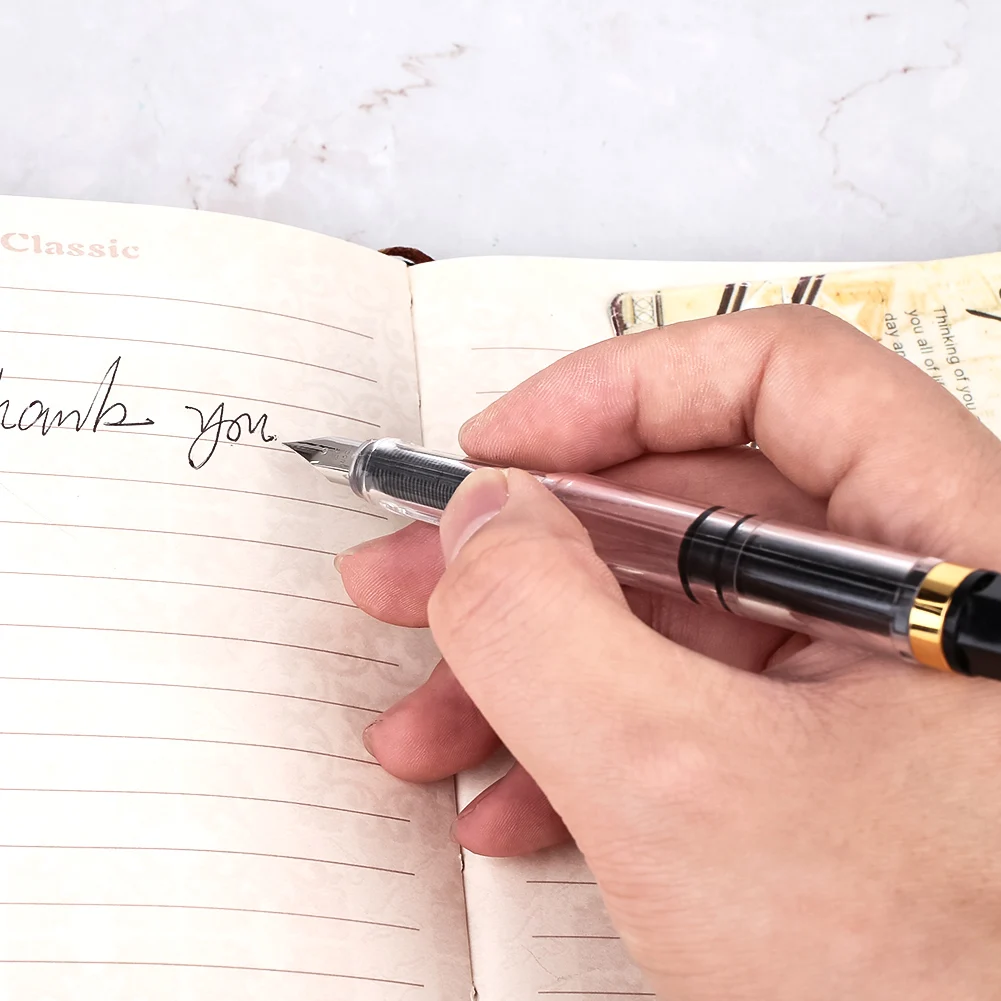 Classic
hank you.
Thinking of you
you all of li
day an